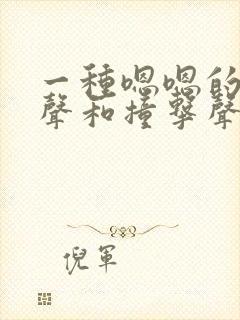 一種嗯嗯的
聲和撞擊聲
倪軍